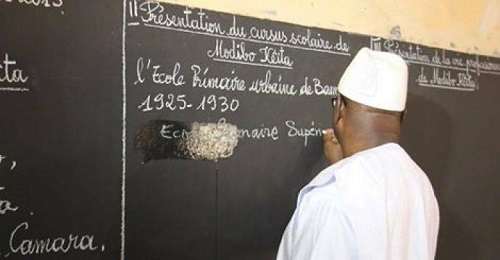 2013
éta
r,
a.
Camara.
II Présentation du cursus scolaire de
Modibo Kéïta
l'Ecole Primaire urbaine de Bam
1925-1930
Ecole Primaire Supéri
III Présentation de la vie professionn
de Modibo Kéïta